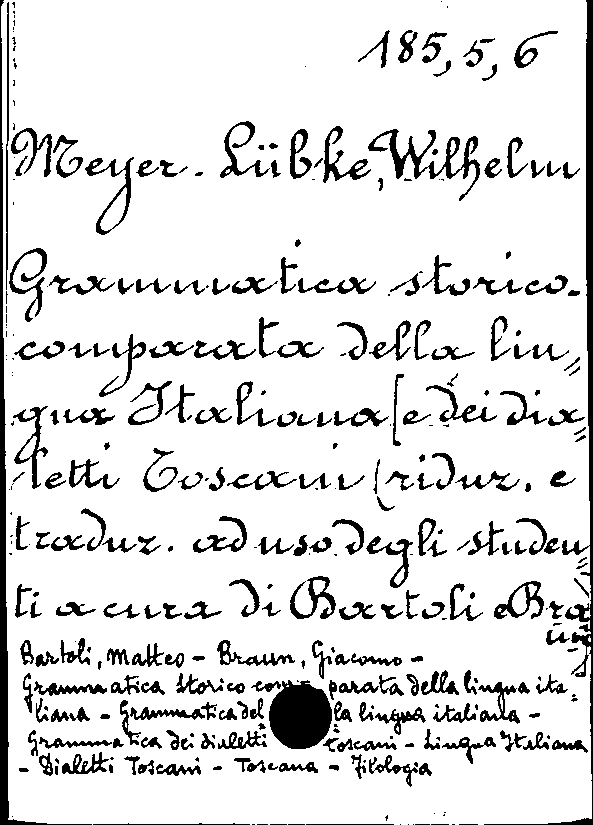 185,5,6
Meyer-Lübke, Wilhelm
Grammatica storico-
comparata della lin=
gua Italiana [e dei dia=
letti Toscani (riduz. e
traduz. ad uso degli studen=
ti a cura di Bartoli e Bra
un)]
Bartoli, Matteo - Braun, Giacomo -
Grammatica Storico com- parata della lingua ita=
liana - Grammatica del la lingua italiana -
Grammatica dei dialetti toscani - Lingua Italiana
- Dialetti Toscani - Toscana - Filologia